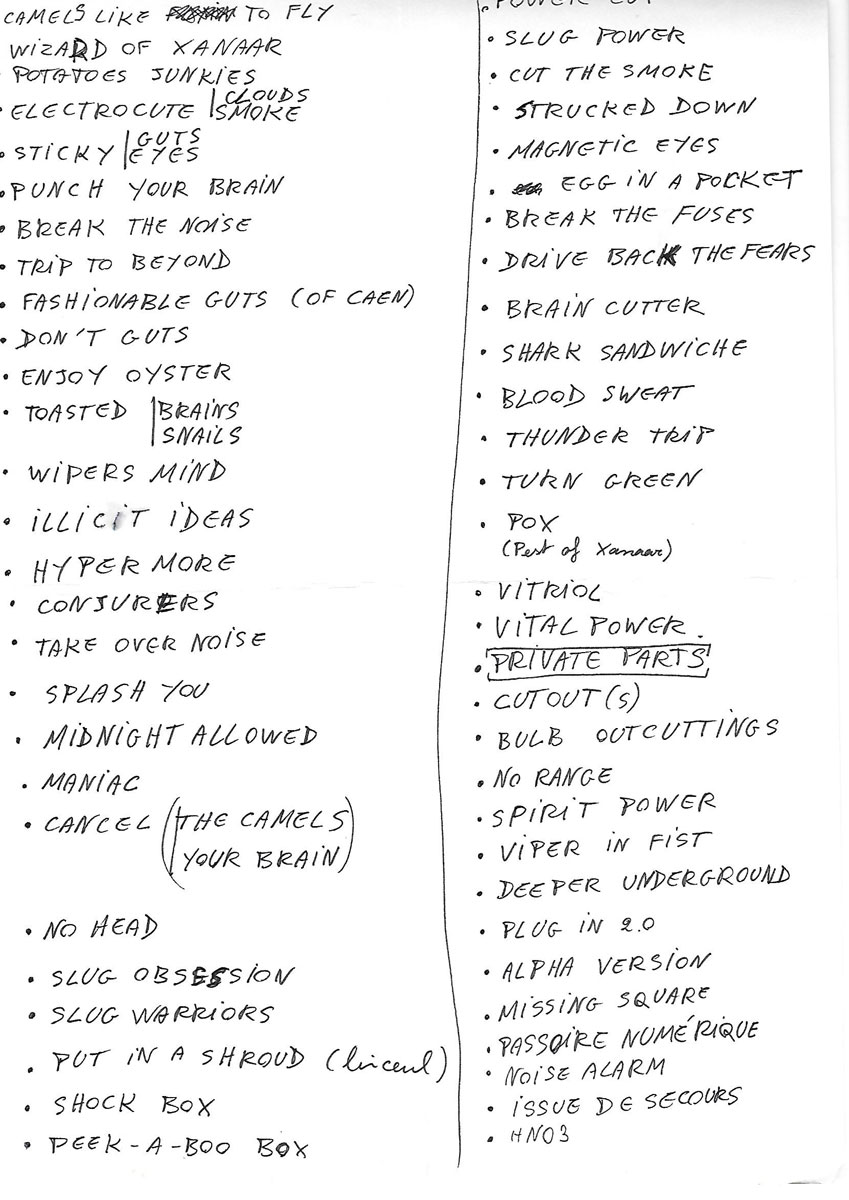 CAMELS LIKE TO FLY
WIZARD OF XANAAR
• POTATOES JUNKIES
• ELECTROCUTE | CLOUDS
SMOKE
• STICKY | GUTS
EYES
• PUNCH YOUR BRAIN
• BREAK THE NOISE
• TRIP TO BEYOND
• FASHIONABLE GUTS (OF CAEN)
• DON'T GUTS
• ENJOY OYSTER
• TOASTED | BRAINS
SNAILS
• WIPERS MIND
• ILLICIT IDEAS
• HYPER MORE
• CONJURERS
• TAKE OVER NOISE
• SPLASH YOU
• MIDNIGHT ALLOWED
• MANIAC
• CANCEL (THE CAMELS
YOUR BRAIN)
• NO HEAD
• SLUG OBSESSION
• SLUG WARRIORS
• PUT IN A SHROUD (linceul)
• SHOCK BOX
• PEEK-A-BOO BOX
• POWER
• SLUG POWER
• CUT THE SMOKE
• STRUCKED DOWN
• MAGNETIC EYES
• EGG IN A POCKET
• BREAK THE FUSES
• DRIVE BACK THE FEARS
• BRAIN CUTTER
• SHARK SANDWICHE
• BLOOD SWEAT
• THUNDER TRIP
• TURN GREEN
• POX
(Pest of Xanaar)
• VITRIOL
• VITAL POWER.
• PRIVATE PARTS
• CUTOUT(S)
• BULB OUTCUTTINGS
• NO RANGE
• SPIRIT POWER
• VIPER IN FIST
• DEEPER UNDERGROUND
• PLUG IN 2.0
• ALPHA VERSION
• MISSING SQUARE
• PASSOIRE NUMÉRIQUE
• NOISE ALARM
• ISSUE DE SECOURS
• HNO3